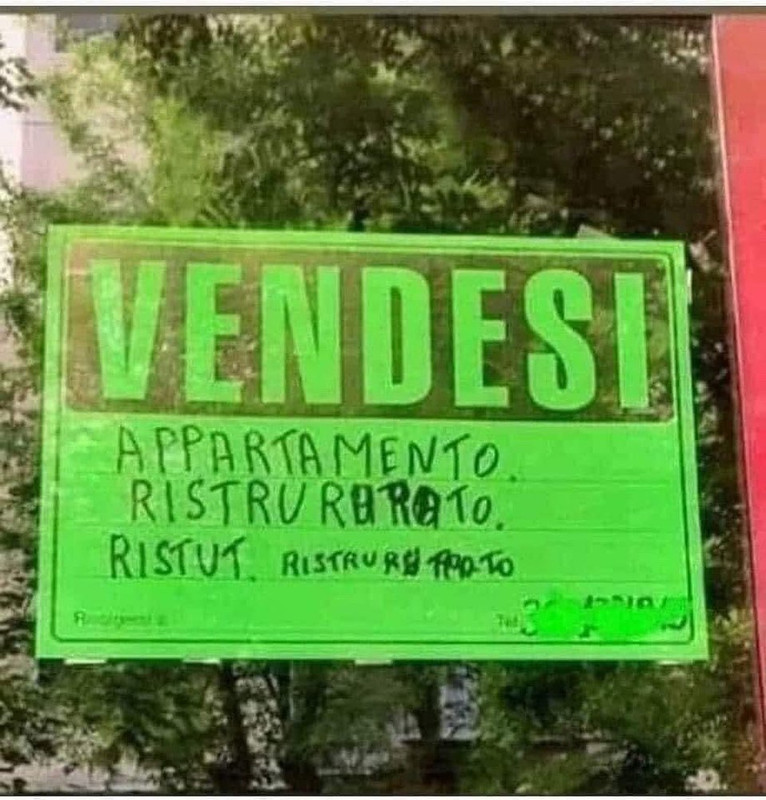 VENDESI
APPARTAMENTO.
RISTRURURATO.
RISTUT.
Rivolgersi a:
Tel.